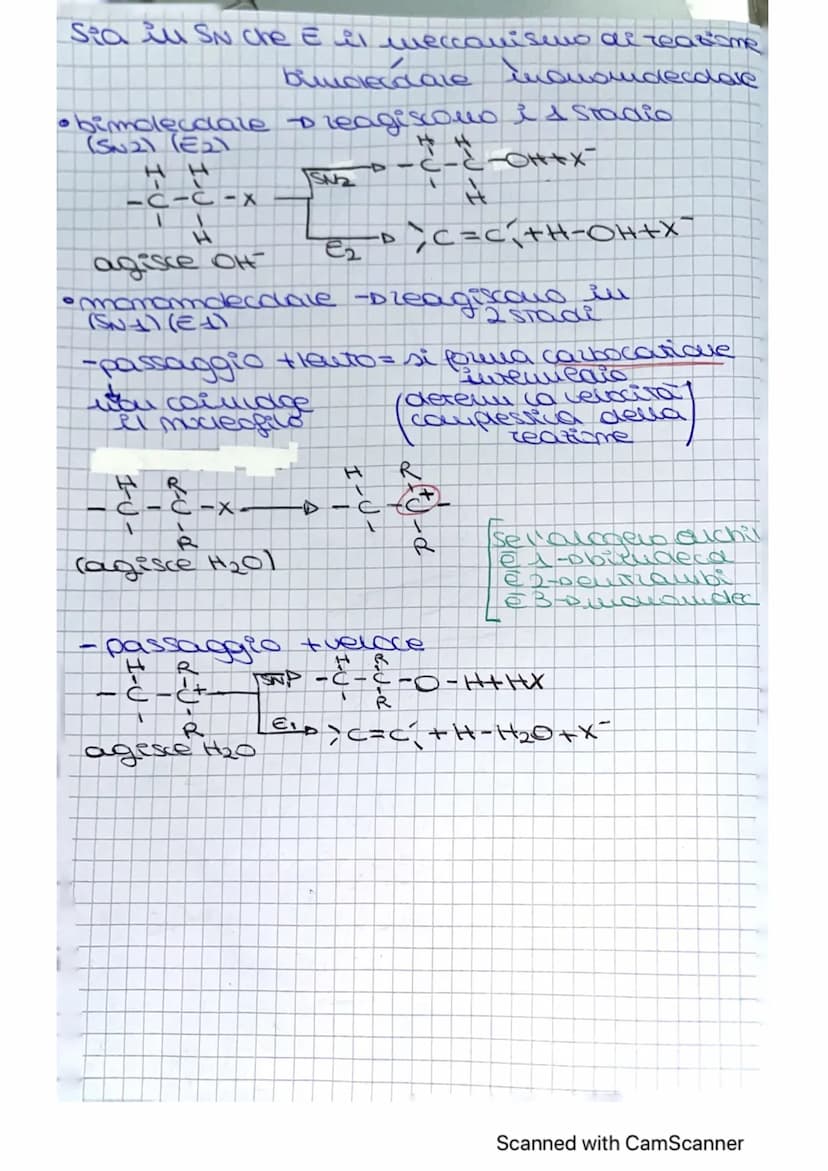 Sia in SN che E il meccanismo di reazione
bimolecolare monomolecolare
• bimolecolare → reagiscono i 1 stadio
(SN2) (E2)
H H
-C-C-X
H
SN2 → -C-C-OH+X⁻
H H
H
E2 → C=C + H-OH+X⁻
agisce OH⁻
• monomolecolare → reagiscono in
(SN1) (E1) 2 stadi
- passaggio + lento = si forma carbocatione
intermedio
non coinvolge (determ la velocità
il nucleofilo complessiva della
reazione)
H R H R
-C-C-X → -C-C⁺-
R R
(agisce H2O)
[se l'alogeno alchil
è 1 → bimolecol
è 2 → entrambi
è 3 → monomolec
- passaggio + veloce
H R H R
-C-C+ SN1 → -C-C-O-H+HX
R R
E1 → C=C + H-H2O+X⁻
agisce H2O
Scanned with CamScanner